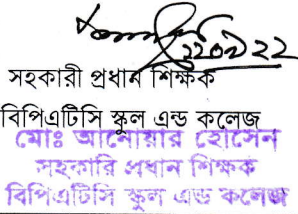 সহকারী প্রধান শিক্ষক
বিপিএটিসি স্কুল এন্ড কলেজ
মোঃ আনোয়ার হোসেন
সহকারি প্রধান শিক্ষক
বিপিএটিসি স্কুল এন্ড কলেজ